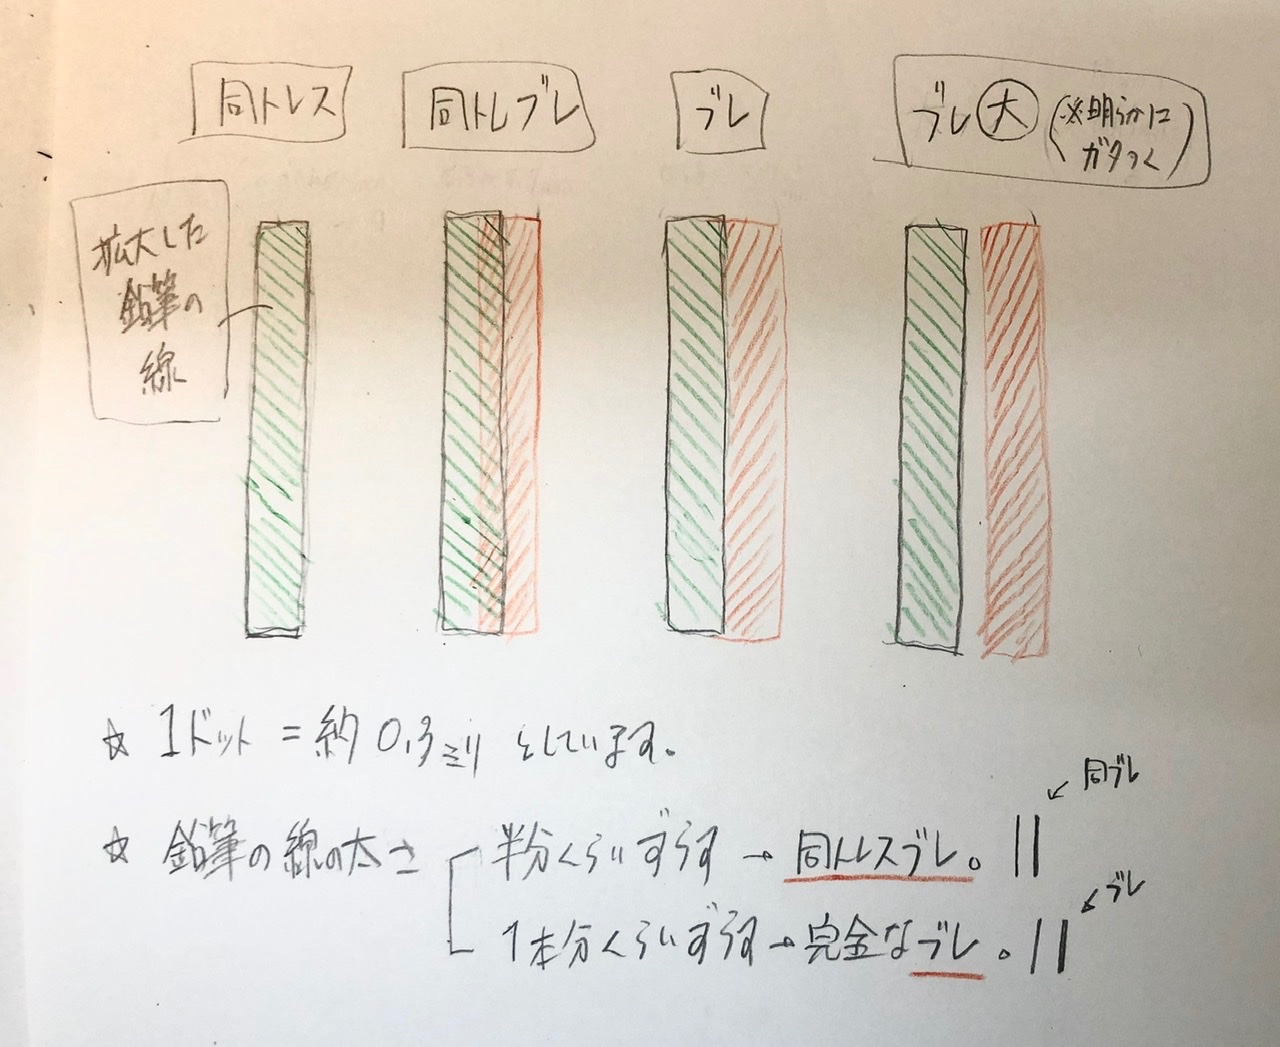 同トレス
同トレブレ
ブレ
ブレ大(※明らかに
ガタつく)
拡大した
鉛筆の
線
☆ 1ドット=約0.3ミリとしています。
同ブレ
☆ 鉛筆の線の太さ
半分くらいずらす→同トレスブレ。
ブレ
1本分くらいずらす→完全なブレ。